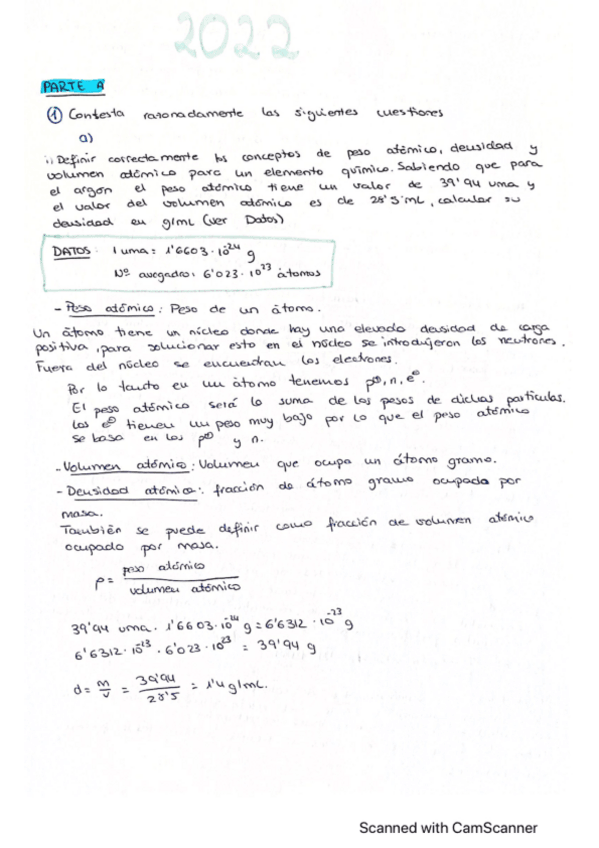 2022
PARTE A
① Contesta razonadamente las siguientes cuestiones
a)
¡¡ Definir correctamente los conceptos de peso atómico, densidad y
volumen atómico para un elemento químico. Sabiendo que para
el argón el peso atómico tiene un valor de 39'94 uma y
el valor del volumen atómico es de 28'5 mL, calcular su
densidad en g/mL (ver Datos)
DATOS. 1 uma = 1'6603·10⁻²⁴ g
Nº avogadro: 6'023·10²³ átomos
- Peso atómico: Peso de un átomo.
Un átomo tiene un núcleo donde hay una elevada densidad de carga
positiva, para solucionar esto en el núcleo se introdujeron los neutrones.
Fuera del núcleo se encuentran los electrones.
Por lo tanto en un átomo tenemos p⊕, n, e⊖.
El peso atómico será la suma de los pesos de dichas partículas.
Los e⊖ tienen un peso muy bajo por lo que el peso atómico
se basa en los p⊕ y n.
- Volumen atómico: Volumen que ocupa un átomo gramo.
- Densidad atómica: fracción de átomo gramo ocupada por
masa.
También se puede definir como fracción de volumen atómico
ocupado por masa.
ρ = peso atómico / volumen atómico
39'94 uma · 1'6603·10⁻²⁴ g = 6'6312·10⁻²³ g
6'6312·10⁻²³ · 6'023·10²³ = 39'94 g
d = m/v = 39'94/28'5 = 1'4 g/mL.
Scanned with CamScanner